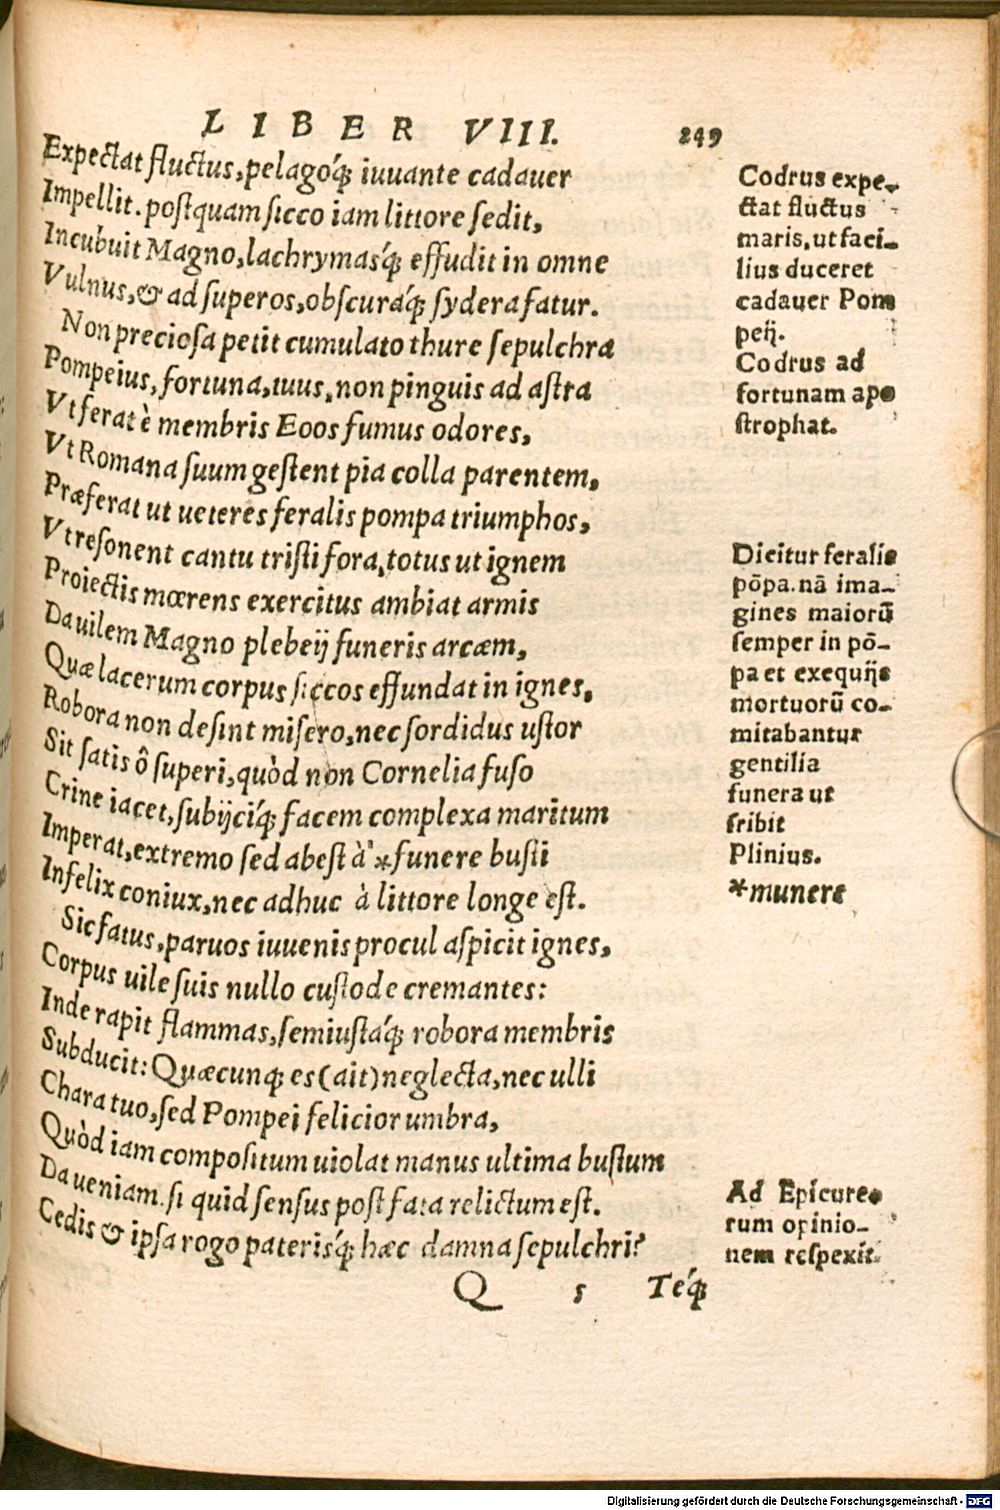 LIBER VIII. 249
Expectat fluctus, pelagoq́; iuuante cadauer
Impellit. postquam sicco iam littore sedit,
Incubuit Magno, lachrymasq́; effudit in omne
Vulnus, & ad superos, obscuraq́; sydera fatur.
Non preciosa petit cumulato thure sepulchra
Pompeius, fortuna, tuus, non pinguis ad astra
Vt ferat è membris Eoos fumus odores,
Vt Romana suum gestent pia colla parentem,
Præferat ut ueteres feralis pompa triumphos,
Vt resonent cantu tristi fora, totus ut ignem
Proiectis mœrens exercitus ambiat armis
Da uilem Magno plebeij funeris arcæm,
Quæ lacerum corpus siccos effundat in ignes,
Robora non desint misero, nec sordidus ustor
Sit satis ô superi, quòd non Cornelia fuso
Crine iacet, subijciq́; facem complexa maritum
Imperat, extremo sed abest à *funere busti
Infelix coniux, nec adhuc à littore longe est.
Sic fatus, paruos iuuenis procul aspicit ignes,
Corpus uile suis nullo custode cremantes:
Inde rapit flammas, semiustaq́; robora membris
Subducit: Quæcunq; es (ait) neglecta, nec ulli
Chara tuo, sed Pompei felicior umbra,
Quòd iam compositum uiolat manus ultima bustum
Da ueniam. si quid sensus post fata relictum est.
Cedis & ipsa rogo paterisq́; hæc damna sepulchri?
Q 5 Teq́;
Codrus expe-
ctat fluctus
maris, ut faci-
lius duceret
cadauer Pom
peij.
Codrus ad
fortunam apo
strophat.
Dicitur feralis
põpa. nã ima-
gines maiorũ
semper in põ-
pa et exequijs
mortuorũ co-
mitabantur
gentilia
funera ut
scribit
Plinius.
*munere
Ad Epicureo
rum opinio-
nem respexit.
Digitalisierung gefördert durch die Deutsche Forschungsgemeinschaft - DFG